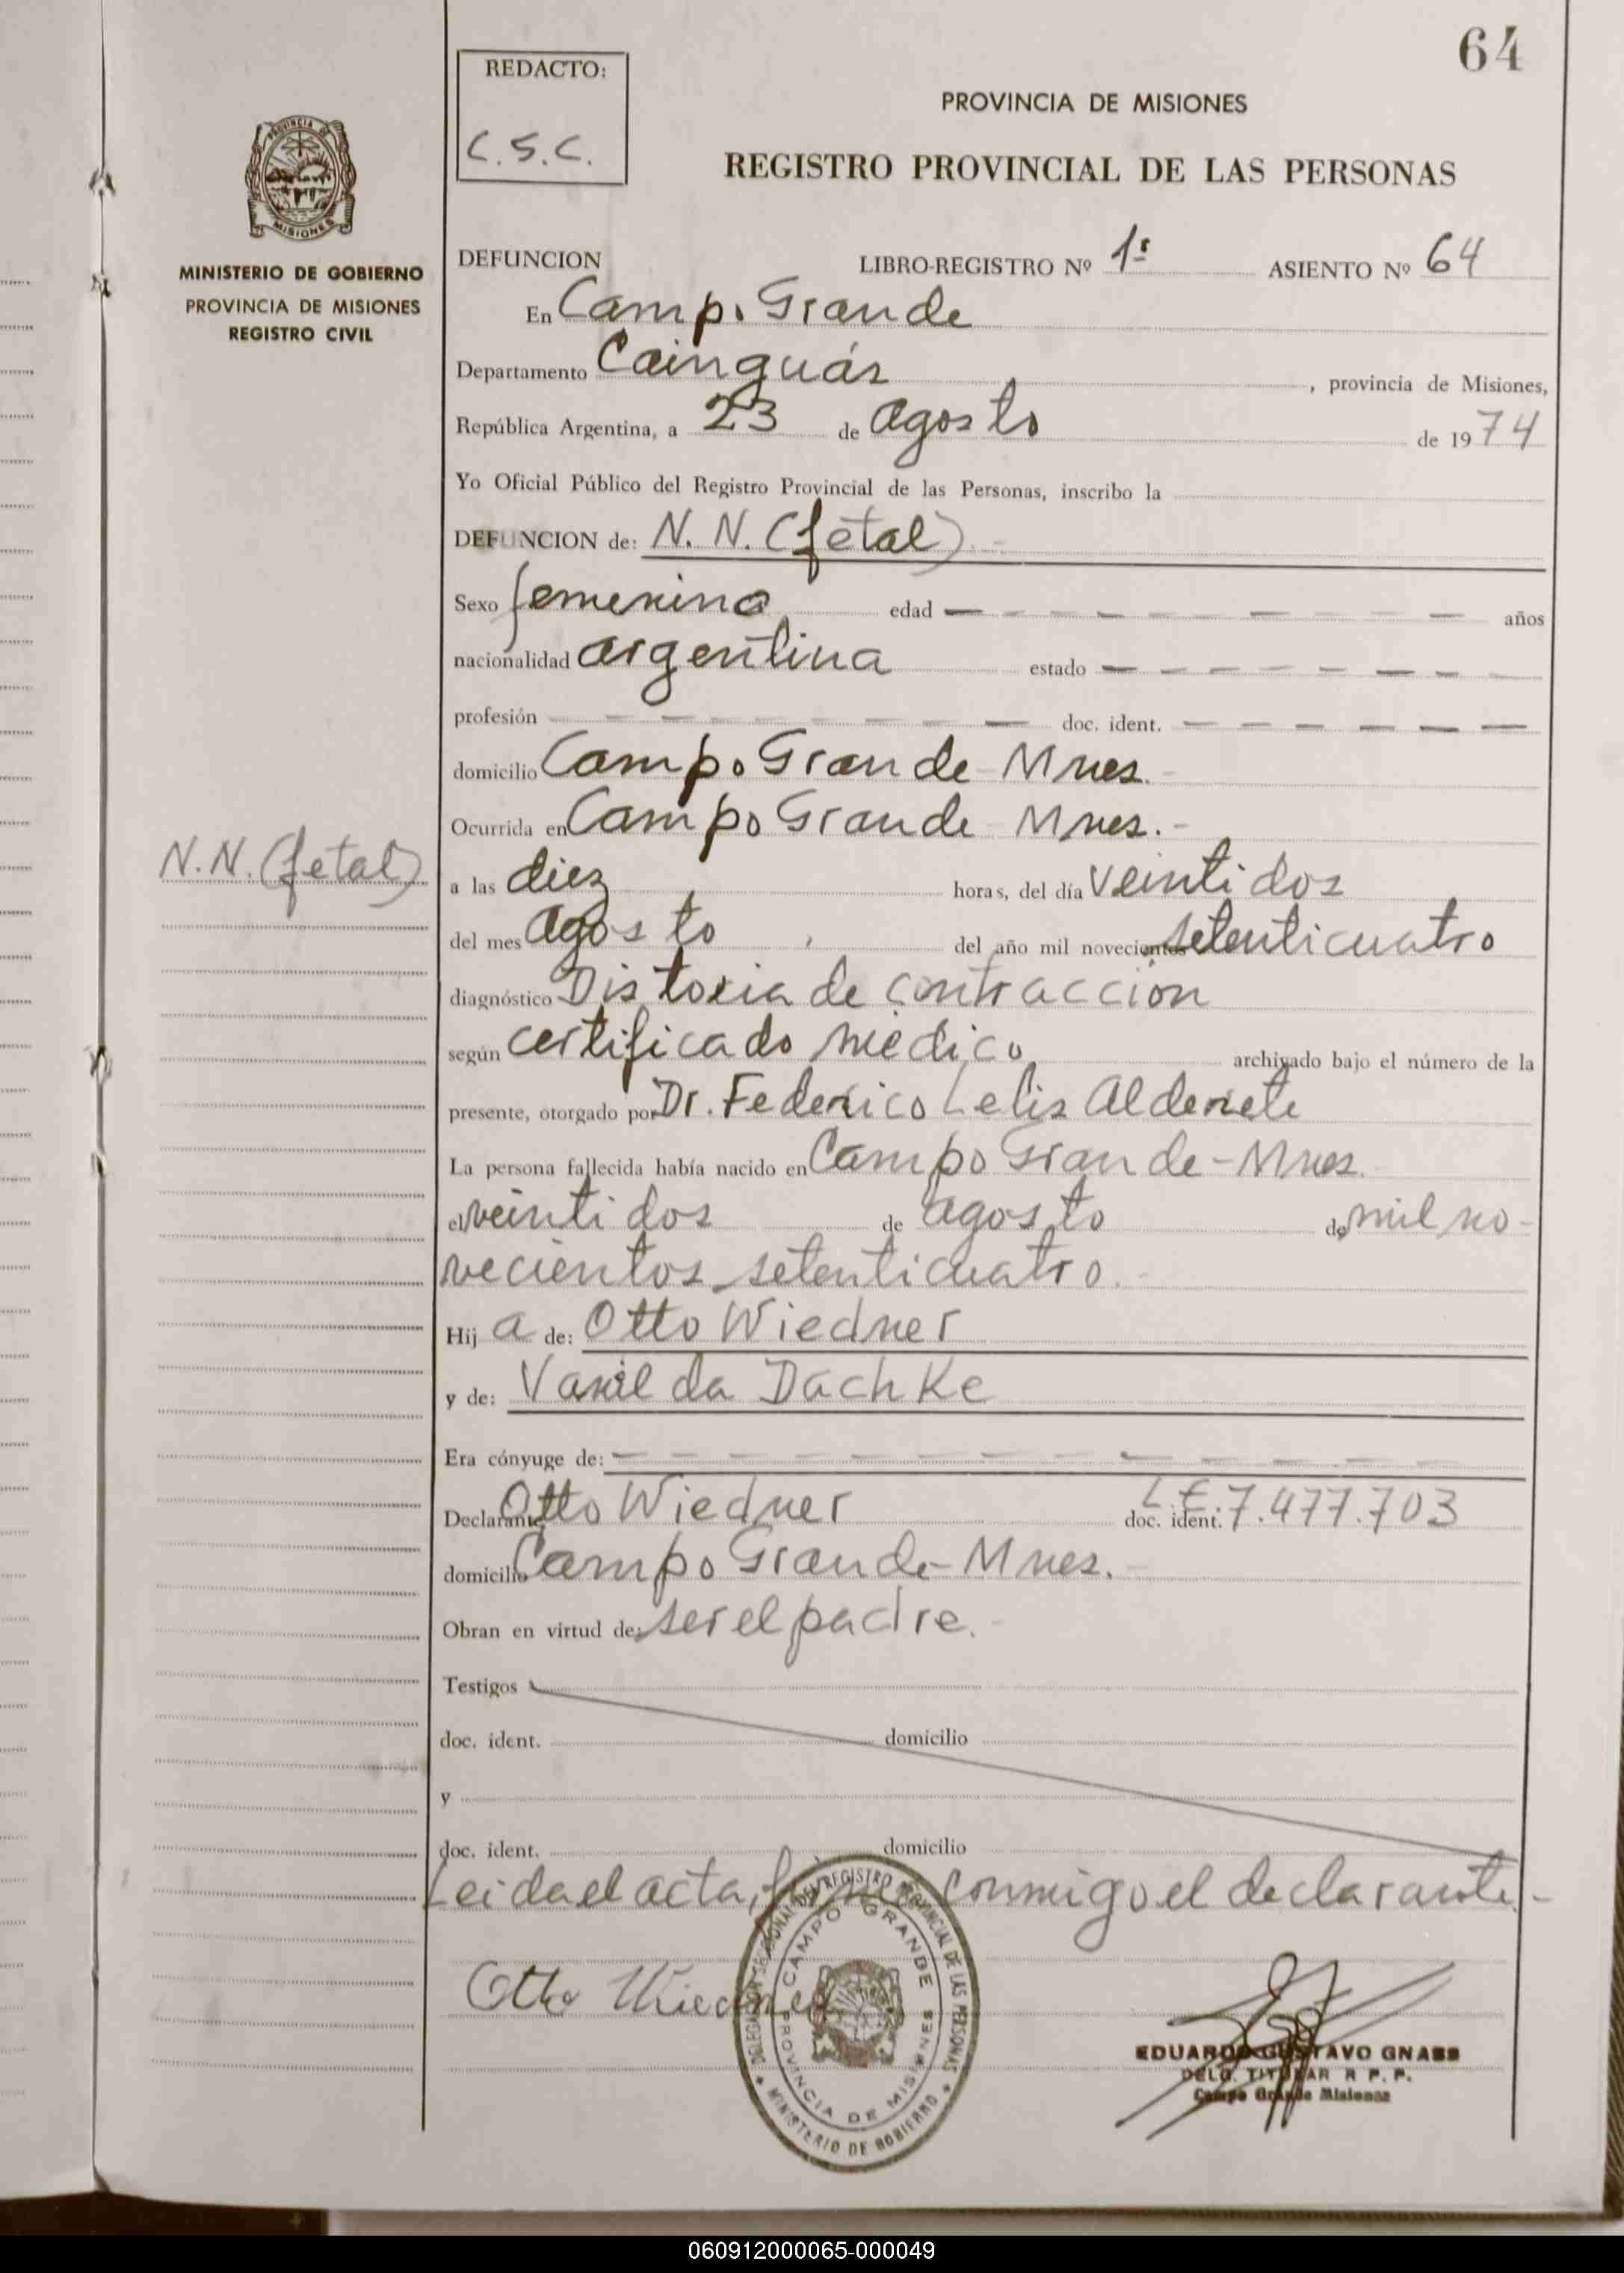 64
REDACTO:
C.S.C.
PROVINCIA DE MISIONES
REGISTRO PROVINCIAL DE LAS PERSONAS
MINISTERIO DE GOBIERNO
PROVINCIA DE MISIONES
REGISTRO CIVIL
DEFUNCION LIBRO-REGISTRO Nº 1º ASIENTO Nº 64
En Campo Grande
Departamento Cainguás, provincia de Misiones,
República Argentina, a 23 de agosto de 1974
Yo Oficial Público del Registro Provincial de las Personas, inscribo la
DEFUNCION de: N. N. (fetal).-
Sexo femenino edad — — — — — — — años
nacionalidad argentina estado — — — — — — —
profesión — — — — — — — doc. ident. — — — — — —
domicilio Campo Grande - Mnes.-
Ocurrida en Campo Grande - Mnes.-
N.N. (fetal)
a las diez horas, del día veintidos
del mes agosto, del año mil novecientos setenticuatro
diagnóstico Distocia de contracción
según certificado médico archivado bajo el número de la
presente, otorgado por Dr. Federico Lelis Alderete
La persona fallecida había nacido en Campo Grande - Mnes.-
el veintidos de agosto de mil no-
vecientos setenticuatro.-
Hija de: Otto Wiedner
y de: Vanilda Dachke
Era cónyuge de: — — — — — — — — — —
Declarante Otto Wiedner doc. ident. L.E. 7.477.703
domicilio Campo Grande - Mnes.-
Obran en virtud de: ser el padre.-
Testigos
doc. ident. domicilio
y
doc. ident. domicilio
Leida el acta, firma conmigo el declarante.-
Otto Wiedner
DELEGACION SECCIONAL DEL REGISTRO PROVINCIAL DE LAS PERSONAS
MINISTERIO DE GOBIERNO
CAMPO GRANDE
PROVINCIA DE MISIONES
EDUARDO GUSTAVO GNASS
DELG. TITULAR R P. P.
Campo Grande Misiones
060912000065-000049